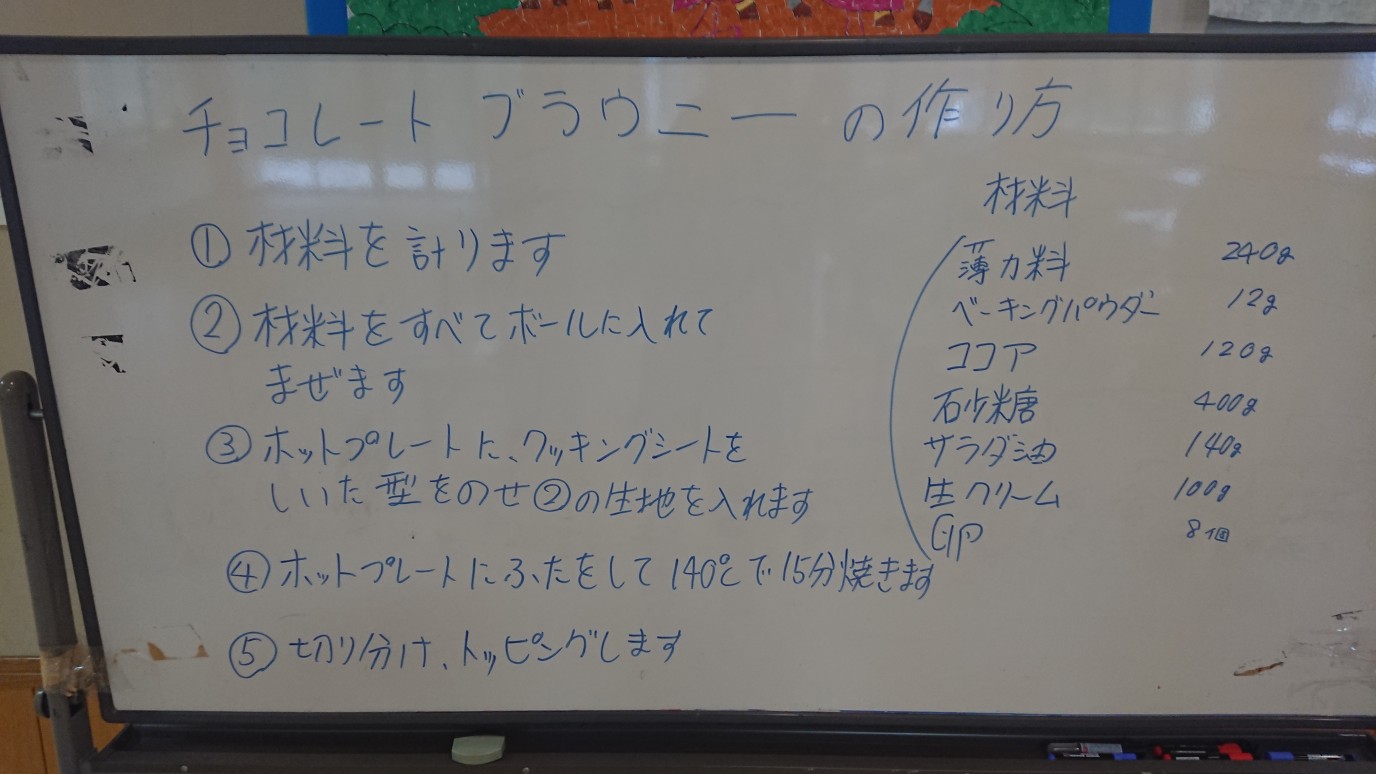 チョコレート ブラウニー の作り方
① 材料を計ります
② 材料をすべてボールに入れて
まぜます
③ ホットプレートに、クッキングシートを
しいた型をのせ②の生地を入れます
④ ホットプレートにふたをして140℃で15分焼きます
⑤ 切り分け、トッピングします
材料
薄力料 240g
ベーキングパウダー 12g
ココア 120g
石砂糖 400g
サラダ油 140g
生クリーム 100g
卵 8個